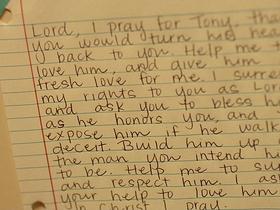 Lord, I pray for Tony, tha
you would turn his hea
back to you. Help me
love him, and give him
fresh love for me. I surre
my rights to you as Lor
and ask you to bless h
as he honors you, and
expose him if he walk
deceit. Build him up i
the man you intend hi
to be. Help me to su
and respect him. I ask
your help to love him
In Christ I pray.